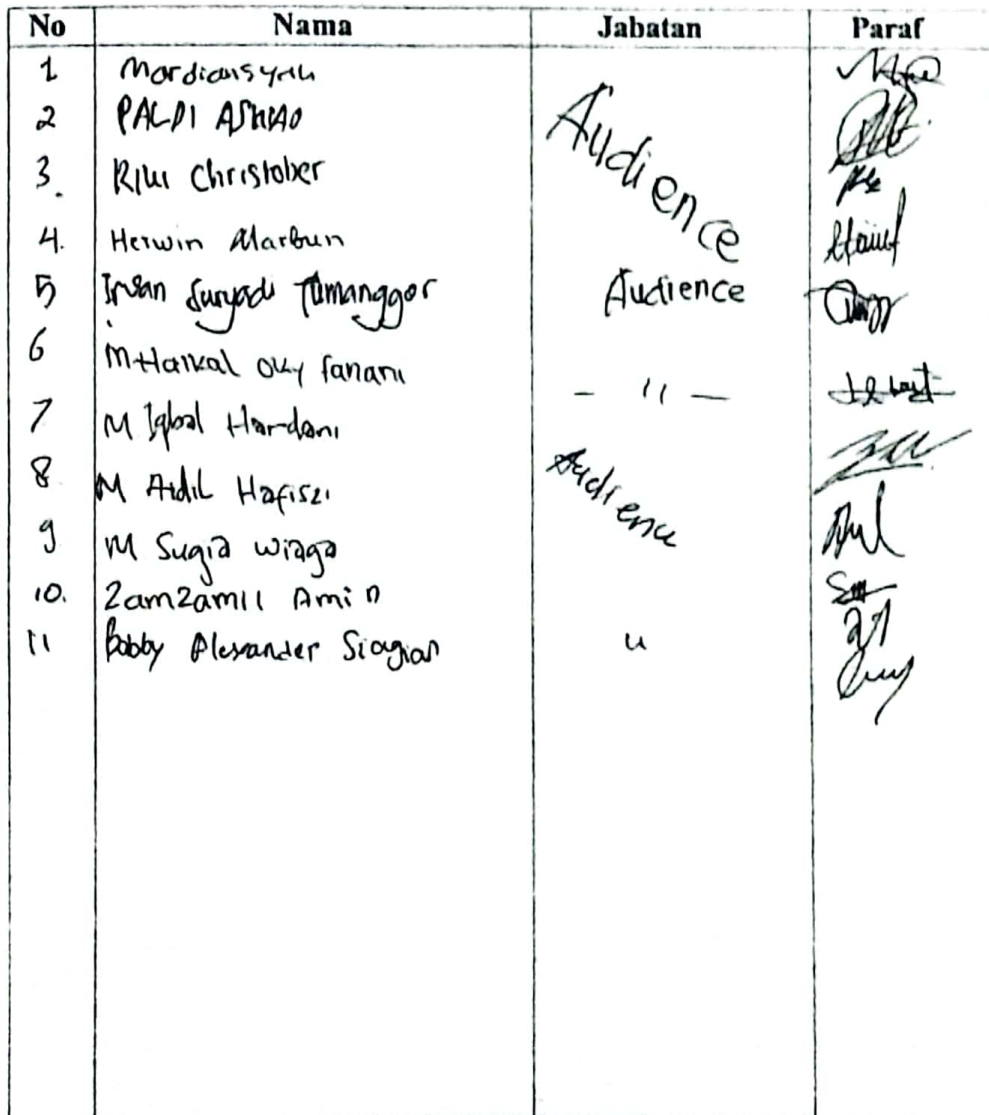 No Nama Jabatan Paraf
1 Mardiansyah
2 PALDI
Audience
3. Riki Christober
4. Herwin Marbun
5 Irvan Suryadi Tumanggor Audience
6 M Haikal Oky fanani - 11 -
7 M Iqbal Hardani
8. M Aidil Hafiszi Audience
9 M Sugia wiraga
10. Zamzamil Amin
11 Bobby Alexander Siagian u